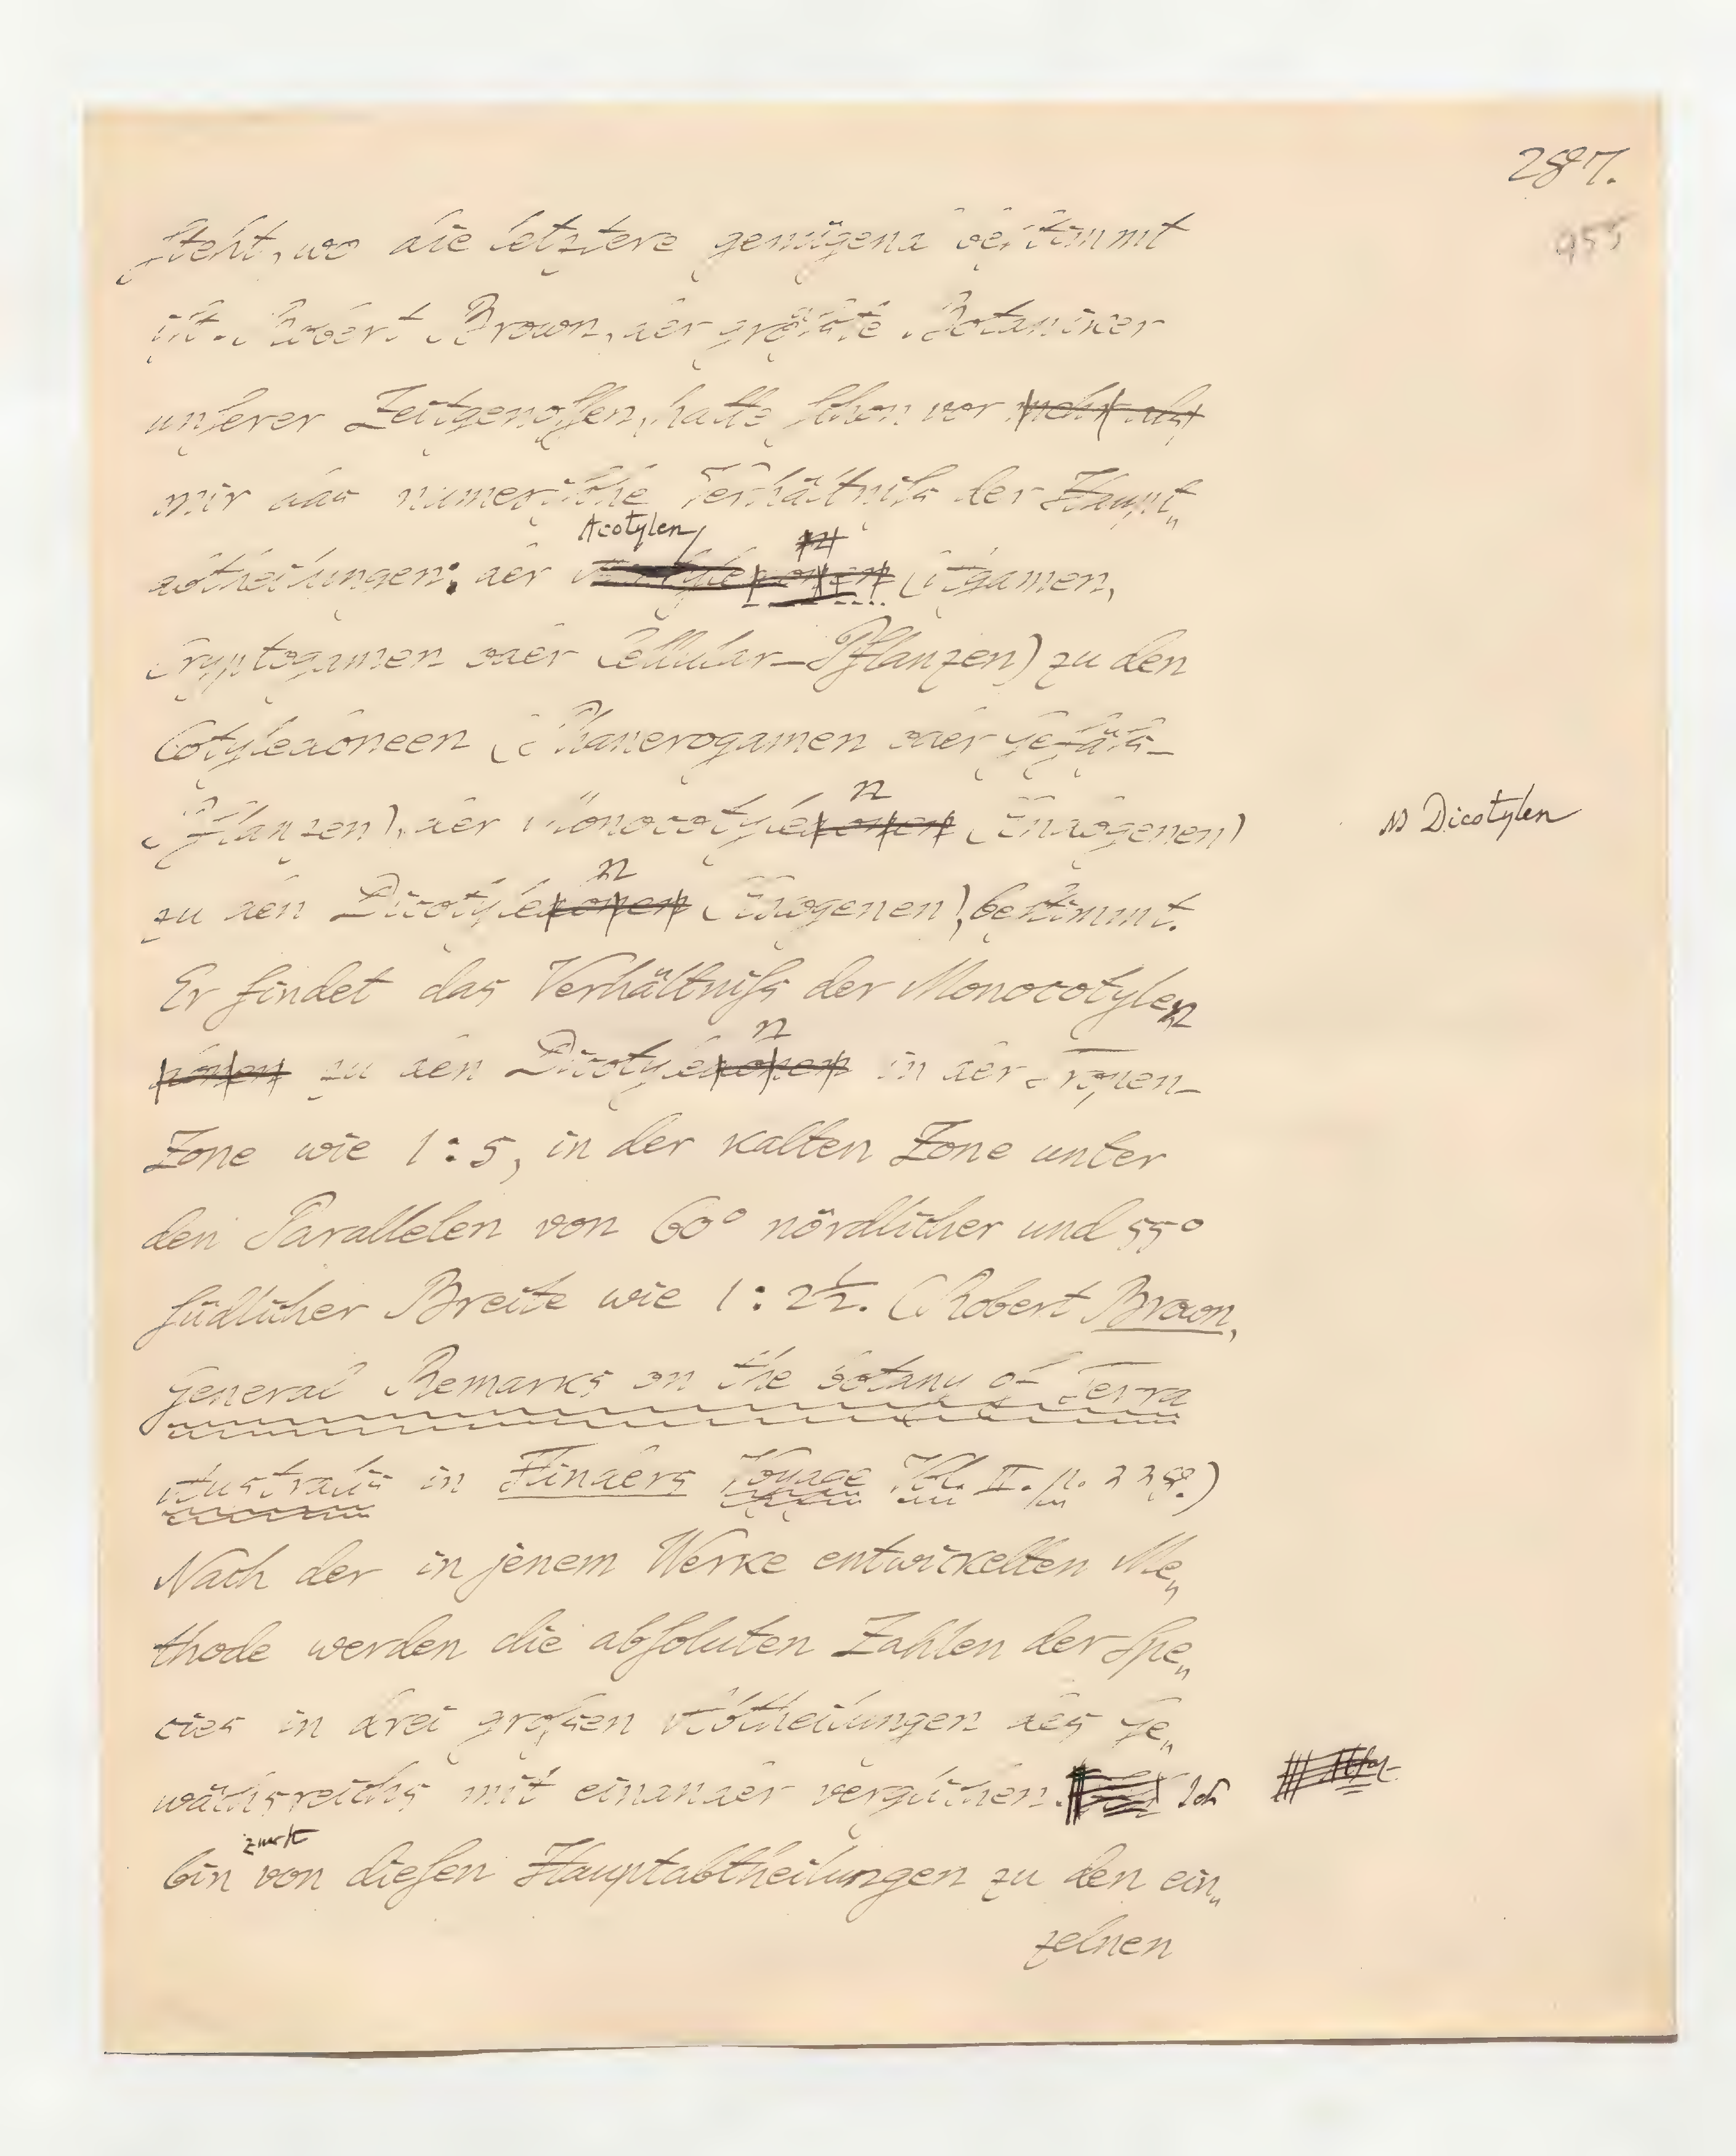 287.
955
ſteht, wo die letztere genügend beſtimmt
iſt. Robert Brown, der größte Botaniker
unſerer Zeitgenoſſen, hatte ſchon vor mehr als
mir das numeriſche Verhältniſs der Haupt„
Acotylen
abtheilungen: der (Agamen,
Cryptogamen oder Cellular-Pflanzen) zu den
Cotyledoneen (Phanerogamen oder Gefäſs-
n
Pflanzen), der Monocotyledonen (Endogenen)
N Dicotylen
n
zu den Dicotyledonen (Exogenen), beſtimmt.
Er findet das Verhältniſs der Monocotylen
n
donen zu den Dicotyledonen in der Tropen-
Zone wie 1:5, in der kalten Zone unter
den Parallelen von 60° nördlicher und 55°
ſüdlicher Breite wie 1:2½. (Robert Brown,
General Remarks on the botany of Terra
Australis in Flinders Voyage Vol. II. p. 338.)
Nach der in jenem Werke entwickelten Me„
thode werden die abſoluten Zahlen der Spe„
cies in drei groſsen Abtheilungen des Ge„
wächsreichs mit einander verglichen. Ich
zuerſt
bin von dieſen Hauptabtheilungen zu den ein„
zelnen